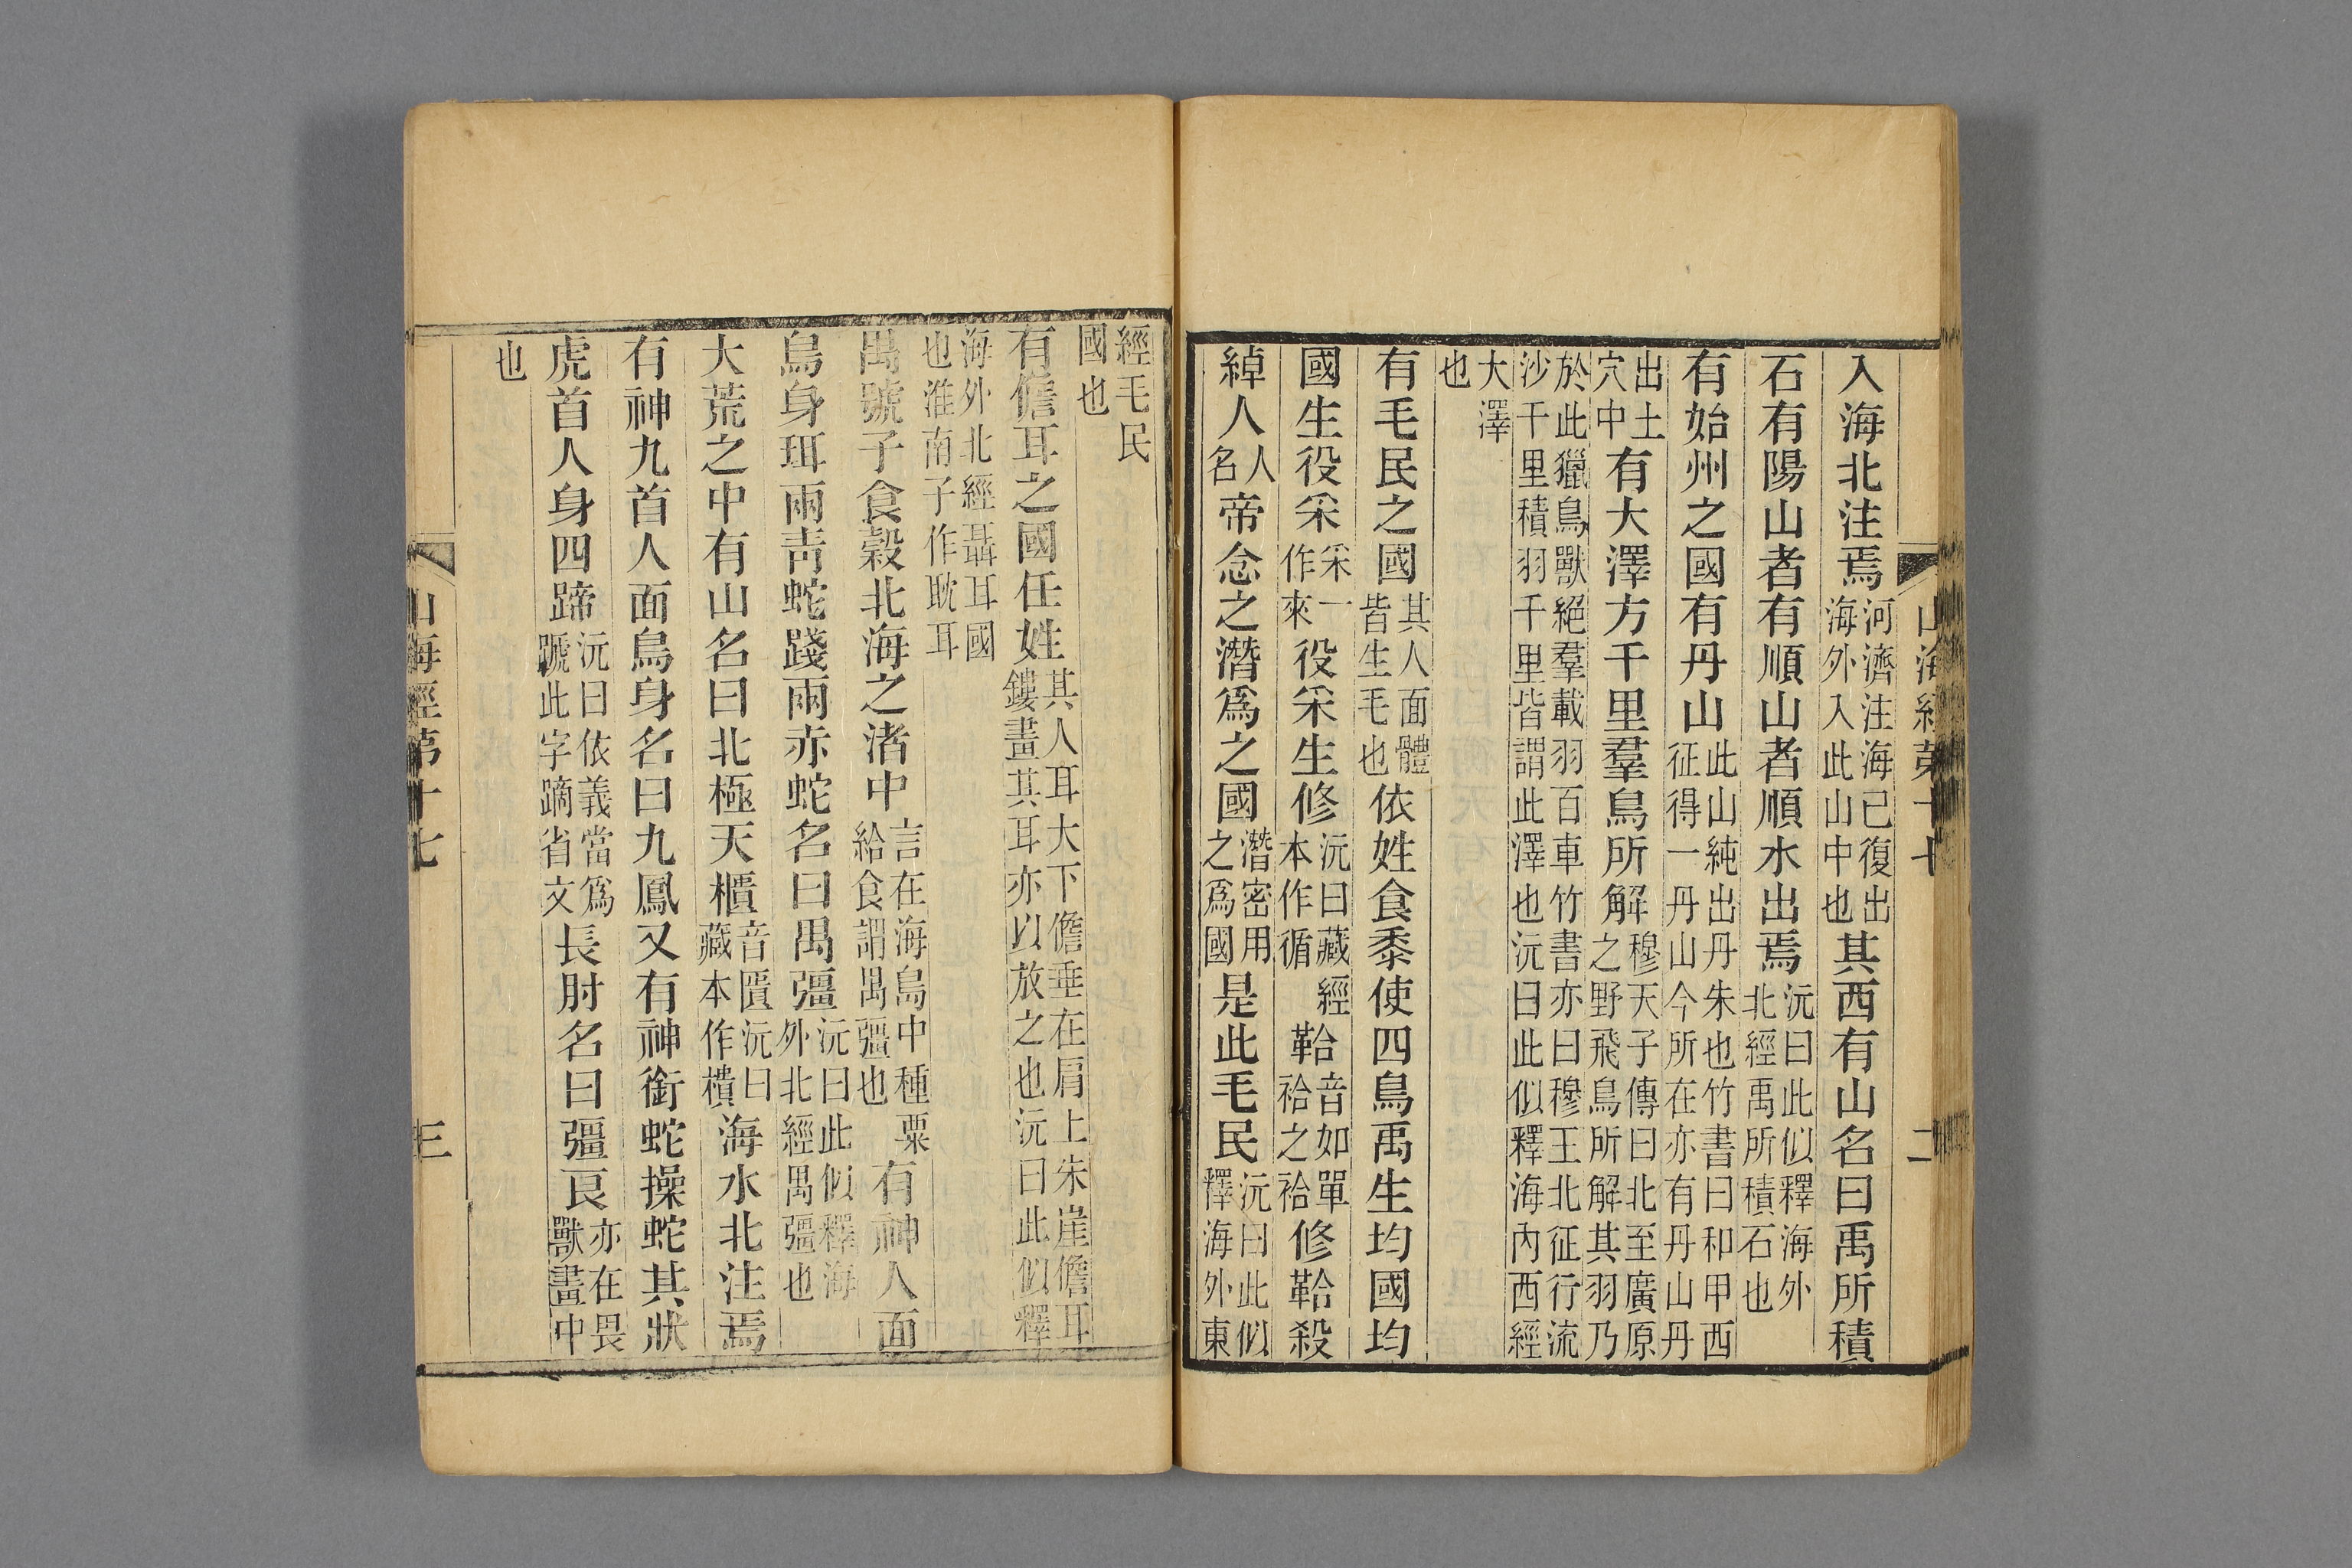 山海經第十七
二
入海北注焉河濟注海已復出海外入此山中也其西有山名曰禹所積
石有陽山者有順山者順水出焉沅曰此似釋海外北經禹所積石也
有始州之國有丹山此山純出丹朱也竹書曰和甲西征得一丹山今所在亦有丹山丹
出土穴中有大澤方千里羣鳥所解穆天子傳曰北至廣原之野飛鳥所解其羽乃
於此獵鳥獸絕羣載羽百車竹書亦曰穆王北征行流沙千里積羽千里皆謂此澤也沅曰此似釋海內西經
大澤也
有毛民之國其人面體皆生毛也依姓食黍使四鳥禹生均國均
國生役采采一作來役采生修沅曰藏經本作循鞈音如單袷之袷修鞈殺
綽人人名帝念之潛爲之國潛密用之爲國是此毛民沅曰此似釋海外東
經毛民國也
有儋耳之國任姓其人耳大下儋垂在肩上朱崖儋耳鏤畫其耳亦以放之也沅曰此似釋
海外北經聶耳國也淮南子作耽耳
禺號子食穀北海之渚中言在海島中種粟給食謂禺彊也有神人面
鳥身珥兩靑蛇踐兩赤蛇名曰禺彊沅曰此似釋海外北經禺彊也
大荒之中有山名曰北極天櫃音匱沅曰藏本作樻海水北注焉
有神九首人面鳥身名曰九鳳又有神銜蛇操蛇其狀
虎首人身四蹏沅曰依義當爲蹏此字蹢省文長肘名曰彊良亦在畏獸畫中
也
山海經第十七
三